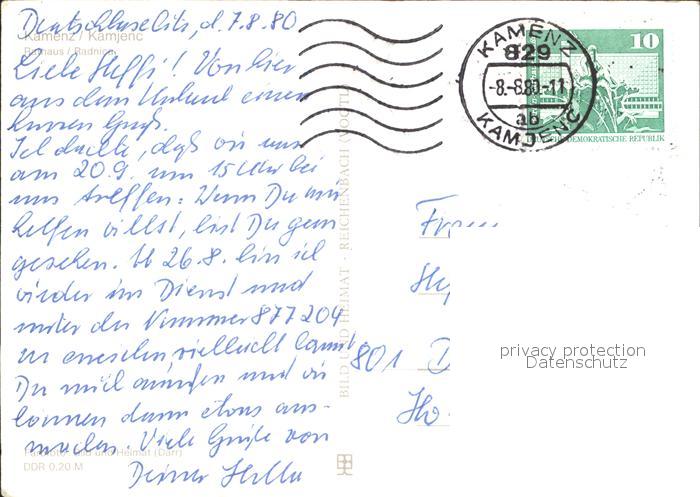 Deutschbaselitz, d. 7.8.80
Kamenz / Kamjenc
Rathaus / Radnica
Liebe Steffi! Von hier
aus dem Urlaub einen
kurzen Gruß.
Ich dachte, daß wir uns
am 20.9. um 15 Uhr bei
uns treffen. Wenn Du mir
helfen willst, bist Du gern
gesehen. Ab 26.8. bin ich
wieder im Dienst und
unter der Nummer 877 204
zu erreichen vielleicht kannst
Du mich anrufen und wir
können dann etwas aus-
machen. Viele Grüße von
Deiner Hella
Bild und Heimat (Darr)
DDR 0,20 M
BILD UND HEIMAT · REICHENBACH (VOGTL)
KAMENZ
829
-8.-8.80.-11
ab
KAMJENC
10
DEUTSCHE DEMOKRATISCHE REPUBLIK
801 D
Ho
privacy protection
Datenschutz